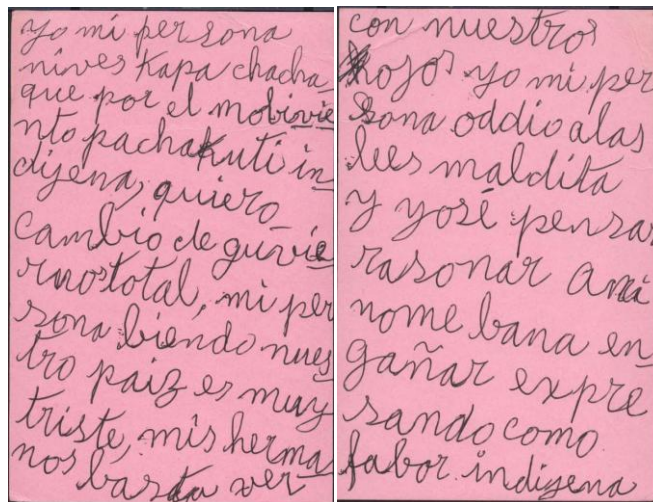 yo mi persona
nives Kapa chacha
que por el mobivie
nto pachakuti in
dijena, quiero
cambio de guvie
rnos total, mi per
sona biendo nues
tro paiz es muy
triste, mis herma
nos basta ver
con nuestros
hojos yo mi per
sona oddio alas
lees maldita
y yo sé pensar
rasonar a mi
nome bana en
gañar expre
sando como
fabor indijena